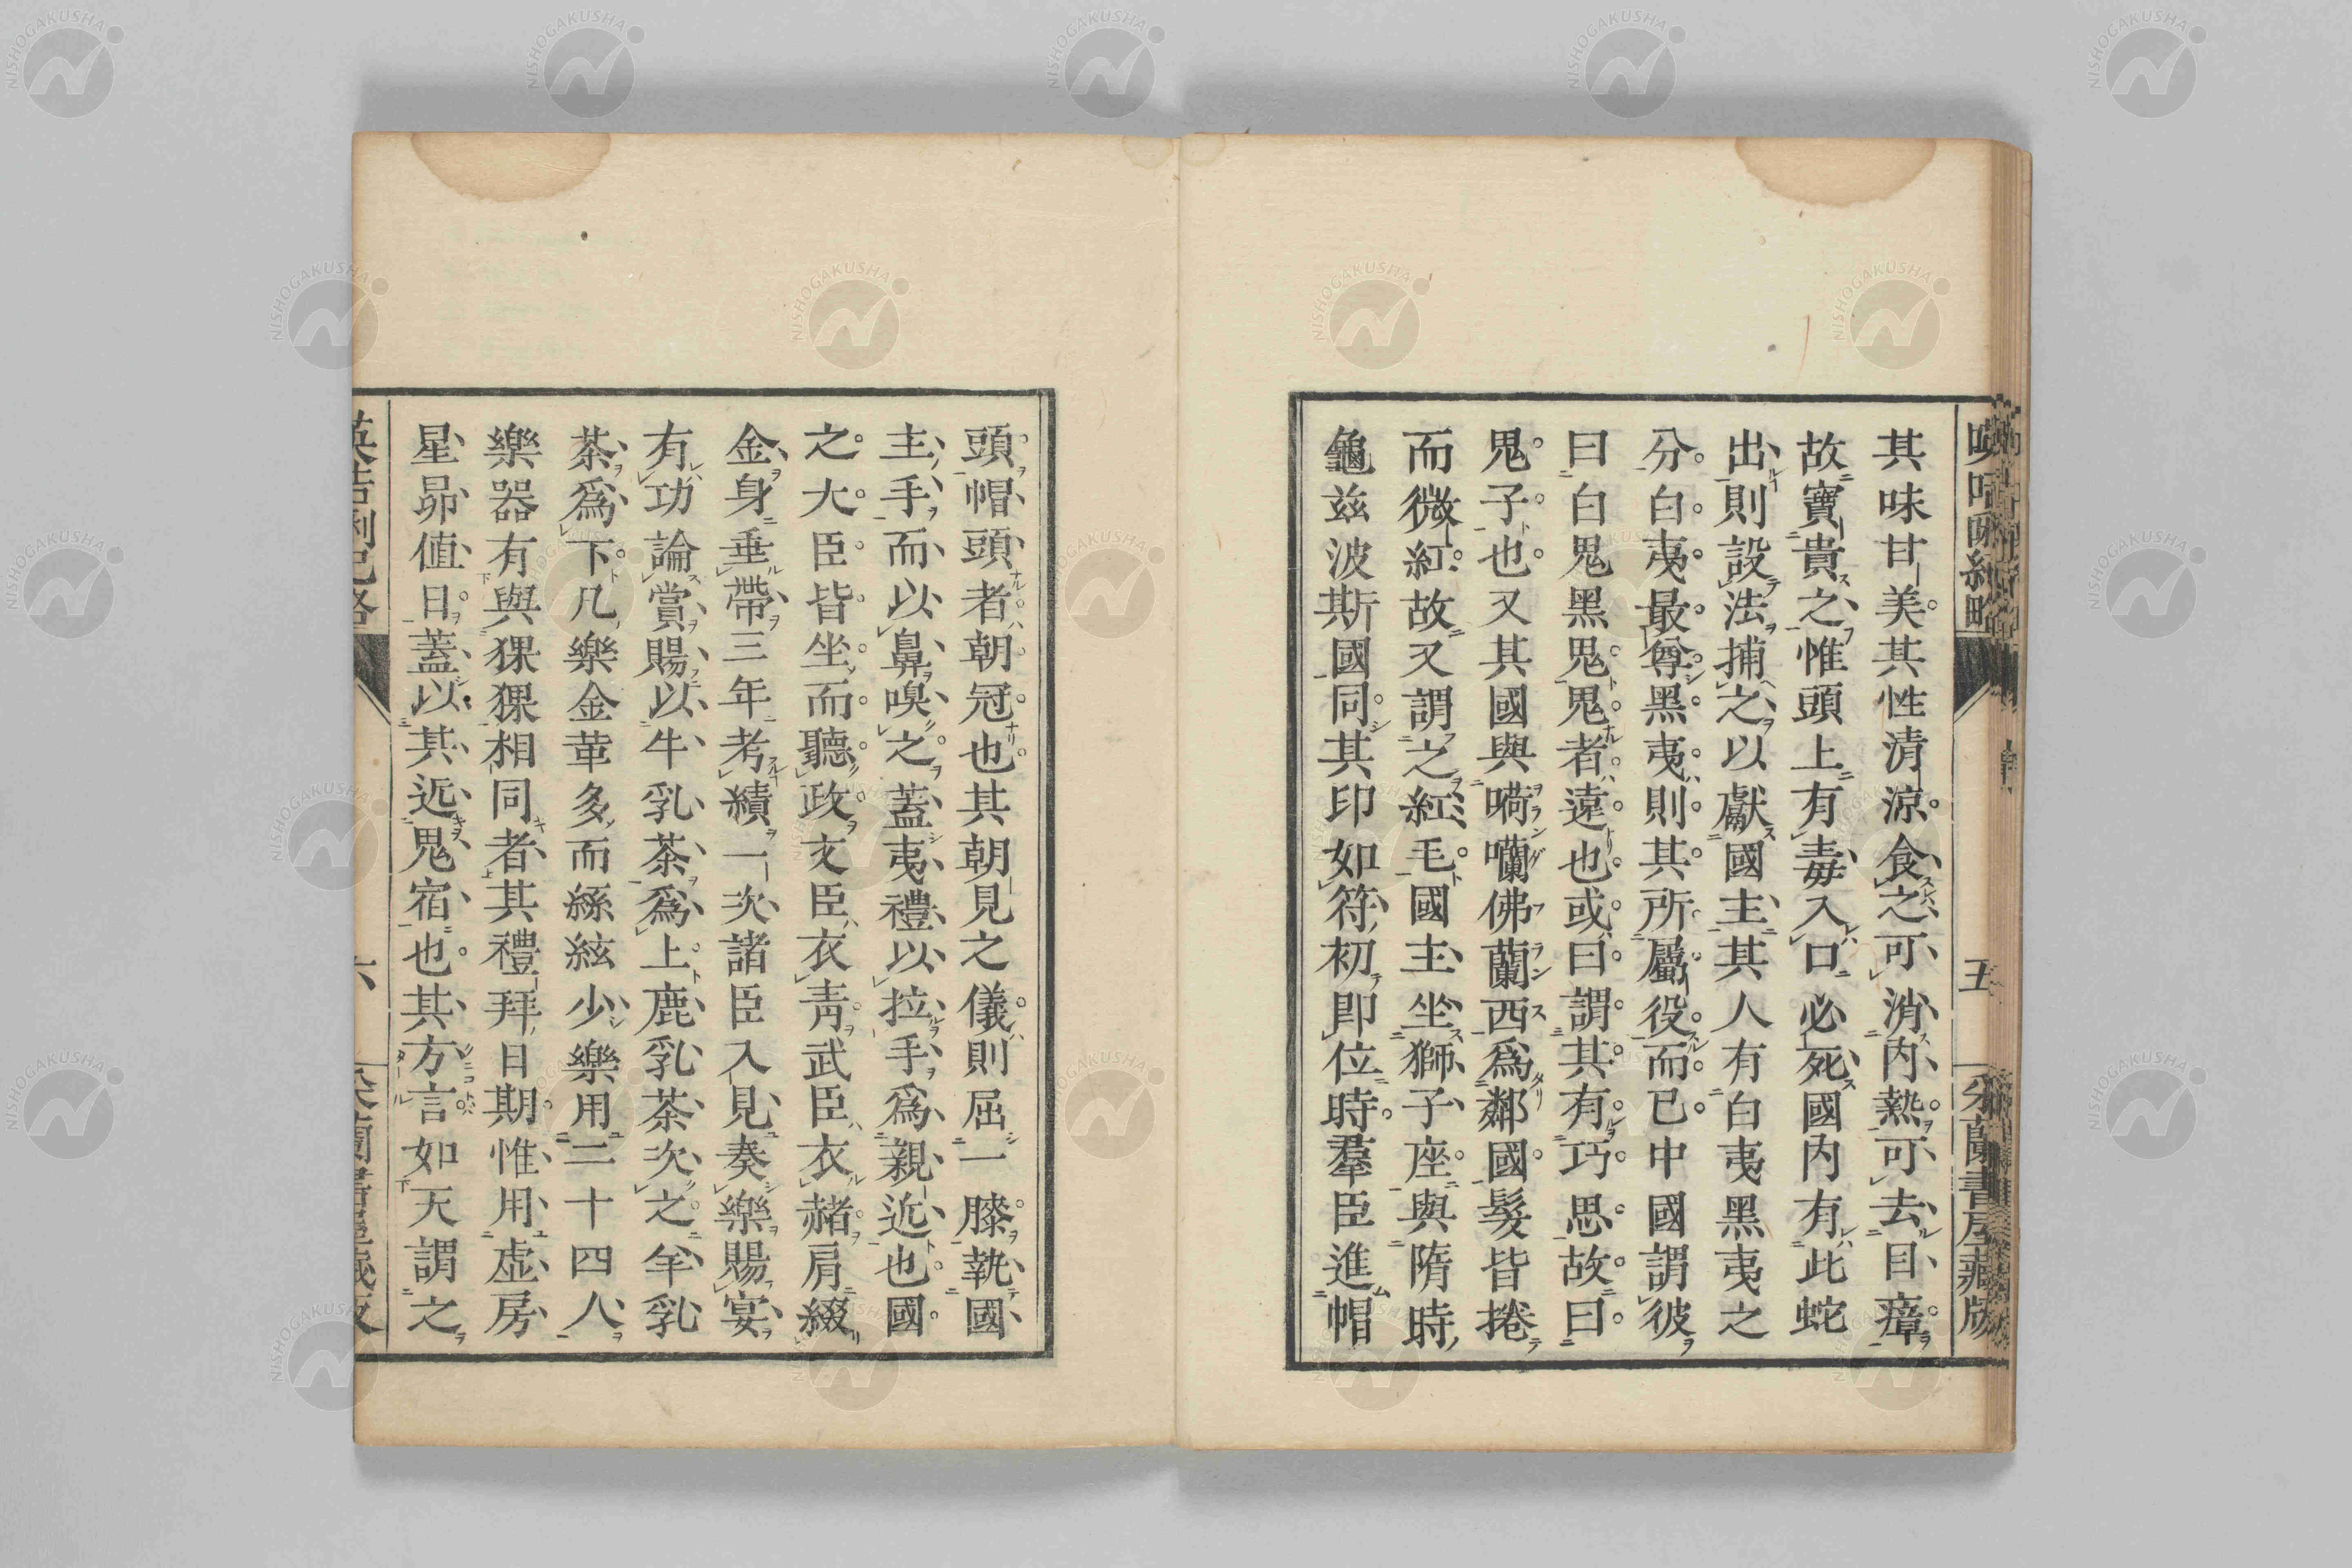 其味甘美其性清涼食之可消內熱可去目瘴
故寶貴之惟頭上有毒入口必死國內有此蛇
出則設法捕之以獻國主其人有白夷黑夷之
分白夷最尊黑夷則其所屬役而已中國謂彼
曰白鬼黑鬼鬼者遠也或曰謂其有巧思故曰
鬼子也又其國與嗬囒佛蘭西爲鄰國髮皆捲
而微紅故又謂之紅毛國主坐獅子座與隋時
龜玆波斯國同其印如符初即位時羣臣進帽
五
采蘭書屋藏版
頭帽頭者朝冠也其朝見之儀則屈一膝執國
主手而以鼻嗅之蓋夷禮以拉手爲親近也國
之大臣皆坐而聽政文臣衣靑武臣衣赭肩綴
金身垂帶三年考績一次諸臣入見奏樂賜宴
有功論賞賜以牛乳茶爲上鹿乳茶次之羊乳
茶爲下凡樂金革多而絲絃少樂用二十四人
樂器有與猓猓相同者其禮拜日期惟用虛房
星昴值日蓋以其近鬼宿也其方言如天謂之
六
NISHOGAKUSHA